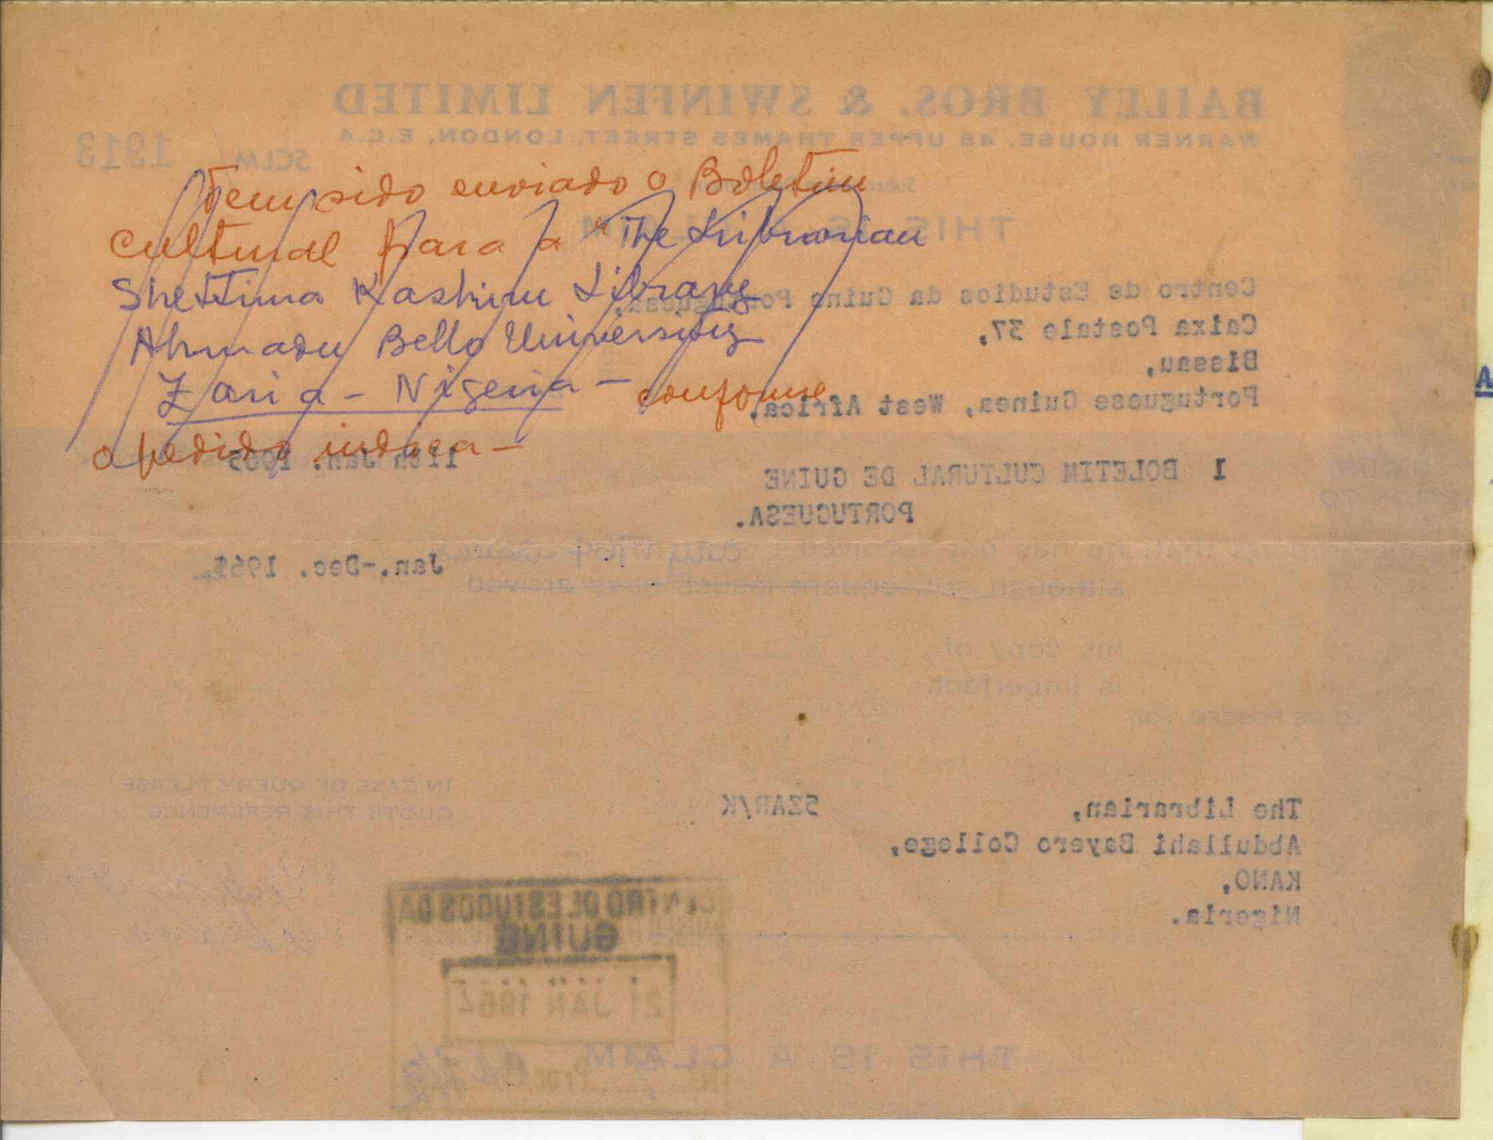 BAILEY BROS. & SWINFEN LIMITED
WARNER HOUSE, 48 UPPER THAMES STREET, LONDON, E.C.4
5CLM 1913
Tem sido enviado o Boletim
Cultural para a "The Librarian
Shettima Kashim Library
Ahmadu Bello University
Zaria - Nigeria - conforme
o pedido indica -
THIS IS
Centro de Estudios da Guine Portuguesa,
Caixa Postale 37,
Bissau,
Portuguese Guinea, West Africa.
11th Jan. 1965
1 BOLETIM CULTURAL DE GUINE
PORTUGUESA.
Jan.-Dec. 196
although subsequent issues have arrived
his copy of
is imperfect
IN CASE OF QUERY PLEASE
QUOTE THIS REFERENCE
5ZAR/K
The Librarian,
Abdullahi Bayero College,
KANO,
Nigeria.
CENTRO DE ESTUDOS DA
GUINÉ
21 JAN 196
THIS IS A CLAIM